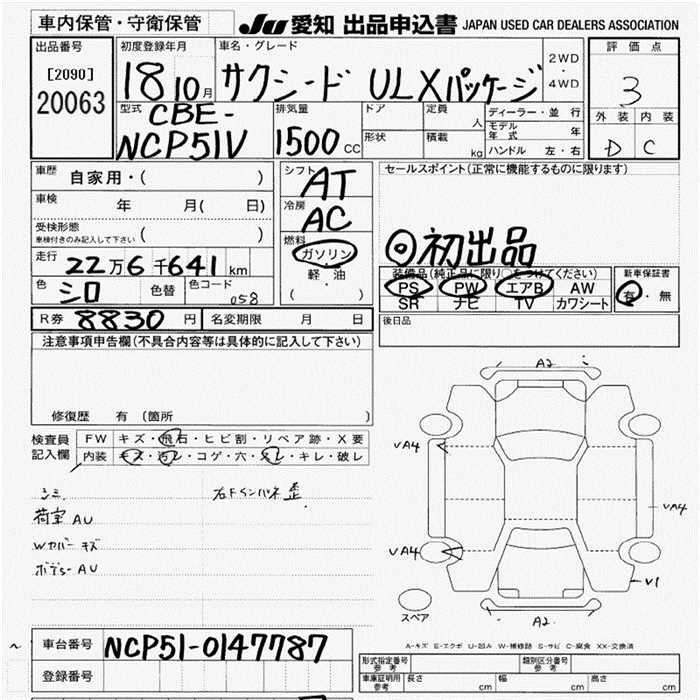 車内保管・守衛保管
JU 愛知 出品申込書 JAPAN USED CAR DEALERS ASSOCIATION
出品番号
[2090]
20063
初度登録年月
18 10月
車名・グレード
サクシード ULXパッケージ
2WD
・
4WD
評価点
3
外装 内装
D C
型式
CBE-
NCP51V
排気量
1500 CC
ドア
形状
定員 人
積載 kg
ディーラー・並行
モデル年式 年
ハンドル 左・右
車歴 自家用・( )
車検 年 月( 日)
受検形態
車検付きのみ記入して下さい ( )
走行 22万6千641km
色 シロ 色替 色コード 058
シフト AT
冷房 AC
燃料
ガソリン
軽・油
( )
セールスポイント(正常に機能するものに限ります)
◎初出品
装備品(純正品に限り○をつけてください)
PS PW エアB AW
SR ナビ TV カワシート
新車保証書
有・無
R券 8830 円 名変期限 月 日
後日品
注意事項申告欄(不具合内容等は具体的に記入して下さい)
修復歴 有(箇所 )
検査員
記入欄
FW キズ・飛石・ヒビ割・リペア跡・X要
内装 キズ・汚レ・コゲ・穴・スレ・キレ・破レ
シミ
荷室 AU
Wカバー キズ
ボデS AU
右Fインパネ歪
A2
VA4
VA4
VA4
V1
A2
スペア
A-キズ E-エクボ U-凹み W-補修跡 S-サビ C-腐食 XX-交換済
車台番号 NCP51-0147787
登録番号
形式指定番号
参考
類別区分番号
参考
車庫証明用
参考
長さ cm 幅 cm 高さ cm